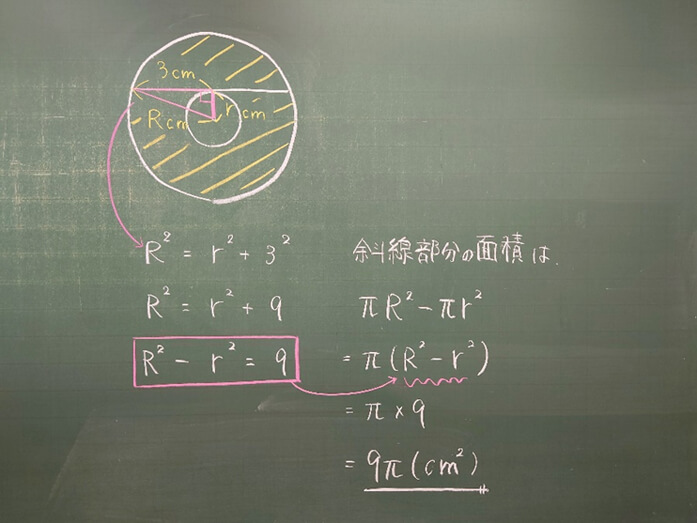 3cm
Rcm
rcm
R² = r² + 3²
R² = r² + 9
R² - r² = 9
斜線部分の面積は、
πR² - πr²
= π(R² - r²)
= π × 9
= 9π(cm²)